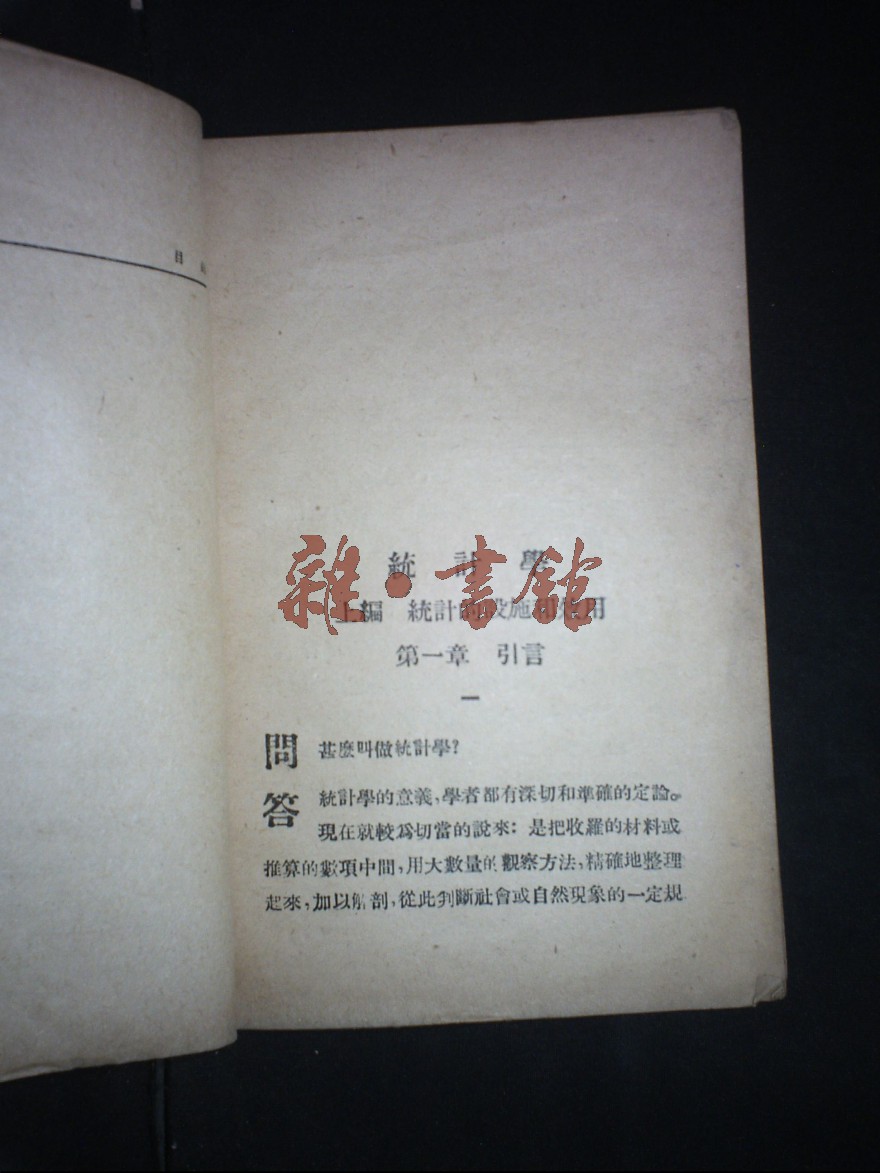 目
統計學
上編 統計的設施和應用
第一章 引言
一
問 甚麽叫做統計學?
答 統計學的意義,學者都有深切和準確的定論。
現在就較爲切當的說來:是把收羅的材料或
推算的數項中間,用大數量的觀察方法,精確地整理
起來,加以解剖,從此判斷社會或自然現象的一定規
雜·書館